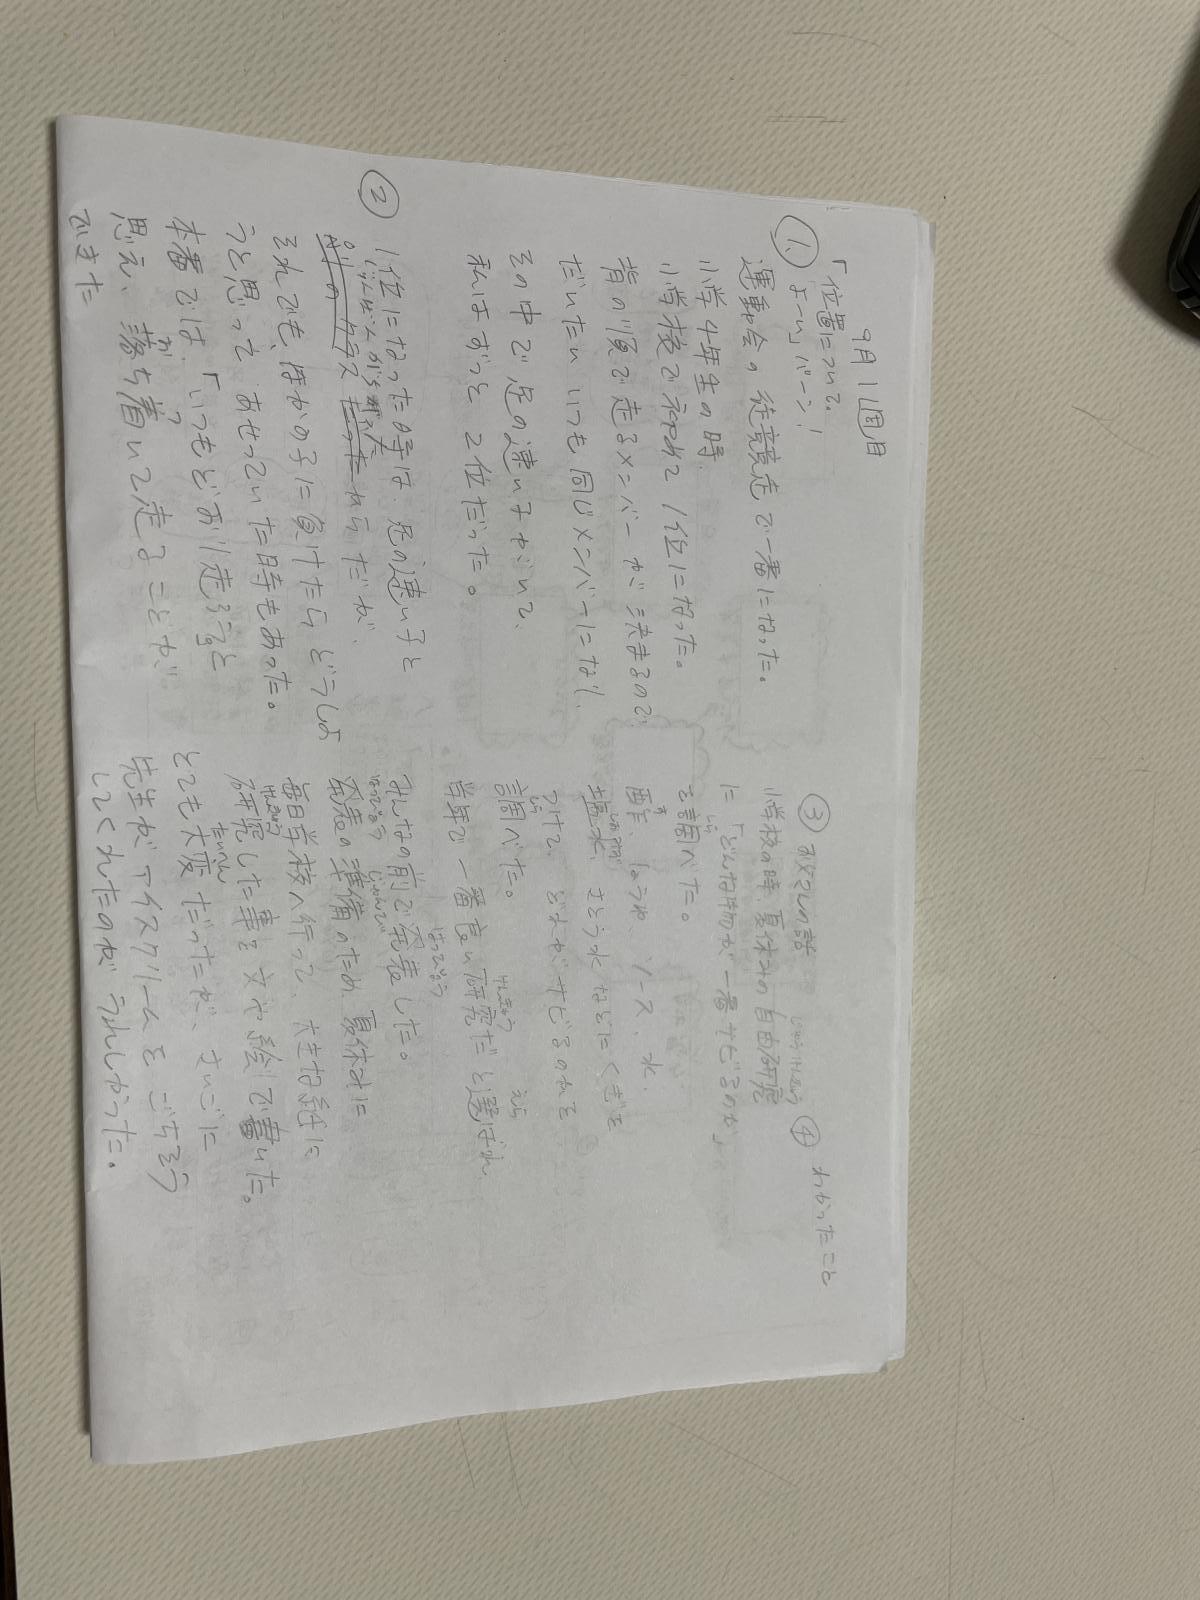 9月1週目
「位置について。
よーい」パーン!
①
運動会の徒競走で一番になった。
小学4年生の時、
小学校で初めて1位になった。
背の順で走るメンバーが決まるので
だいたいいつも同じメンバーになり、
その中で足の速い子がいて、
私はずっと2位だった。
②
1位になった時は、足の速い子と
じゅんばんが
からだが、
それでも、ほかの子に負けたらどうしよ
うと思ってあせっていた時もあった。
本番では、「いつもどおり走ろう」と
思え、落ち着いて走ることが
できた
③
小学校の時、夏休みの自由研究
に「どんな物が一番サビるのか」
しら
を調べた。
す
酢、しょうゆ、ソース、水、
塩水、さとう水などにくぎを
つけて、どれがサビるのかを
しら
調べた。
けんきゅう えら
学年で一番良い研究だと選ばれ、
はっぴょう
みんなの前で発表した。
はっぴょう じゅんび
発表の準備のため、夏休みに
毎日学校へ行って、大きな紙に
けんきゅう
研究した事を文や絵で書いた。
たいへん
とても大変だったが、さいごに
先生がアイスクリームをごちそう
してくれたのがうれしかった。
④ わかったこと